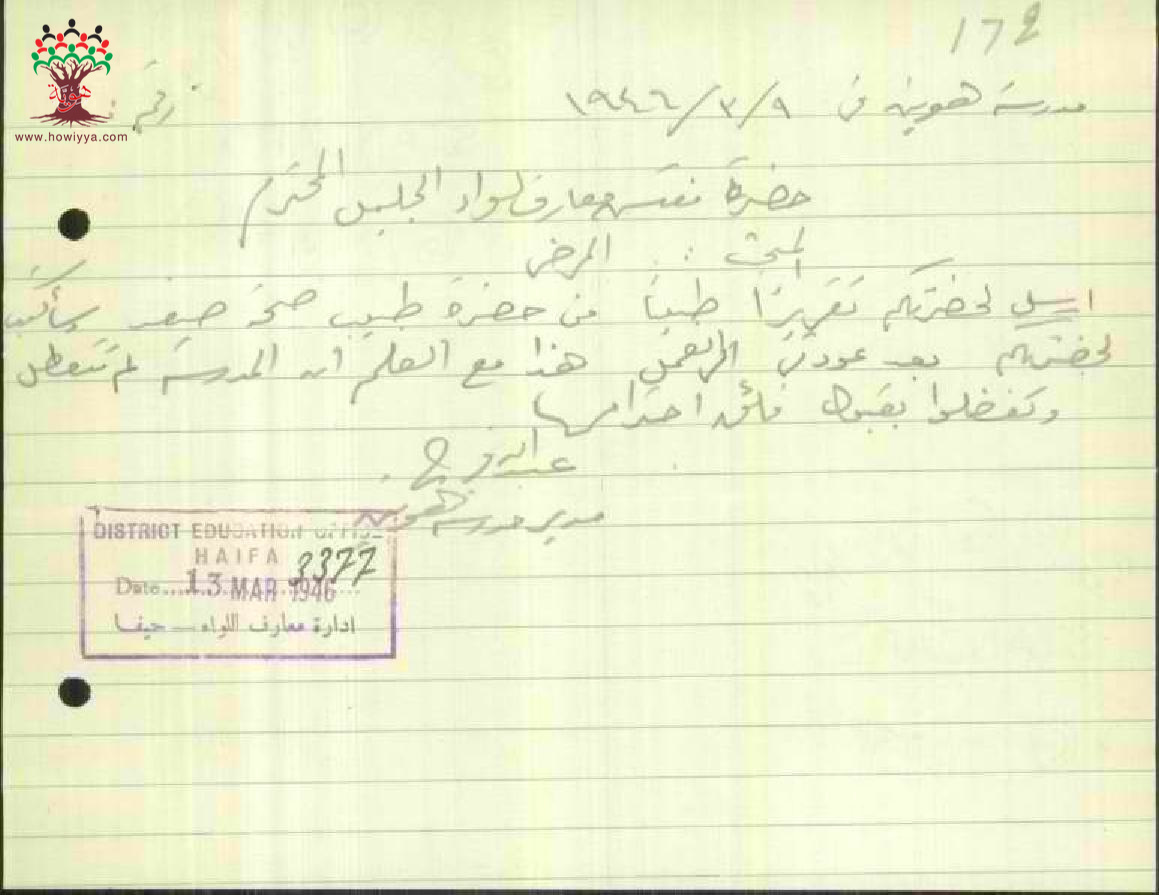 172
مدرسة هونين في ٩/٣/١٩٤٦
رقم :
www.howiyya.com
حضرة مفتش معارف لواء الجليل المحترم
المبحث : المرض
ارسل لحضرتكم تقريرًا طبياً من حضرة طبيب صحة صفد سأكتب
لحضرتكم بعد عودتي الى العمل هذا مع العلم ان المدرسة لم تتعطل
وتفضلوا بقبول فائق احترامي
مدير مدرسة هونين
DISTRICT EDUCATION OFFICE
HAIFA 3377
Date....13 MAR 1946...
ادارة معارف اللواء — حيفا